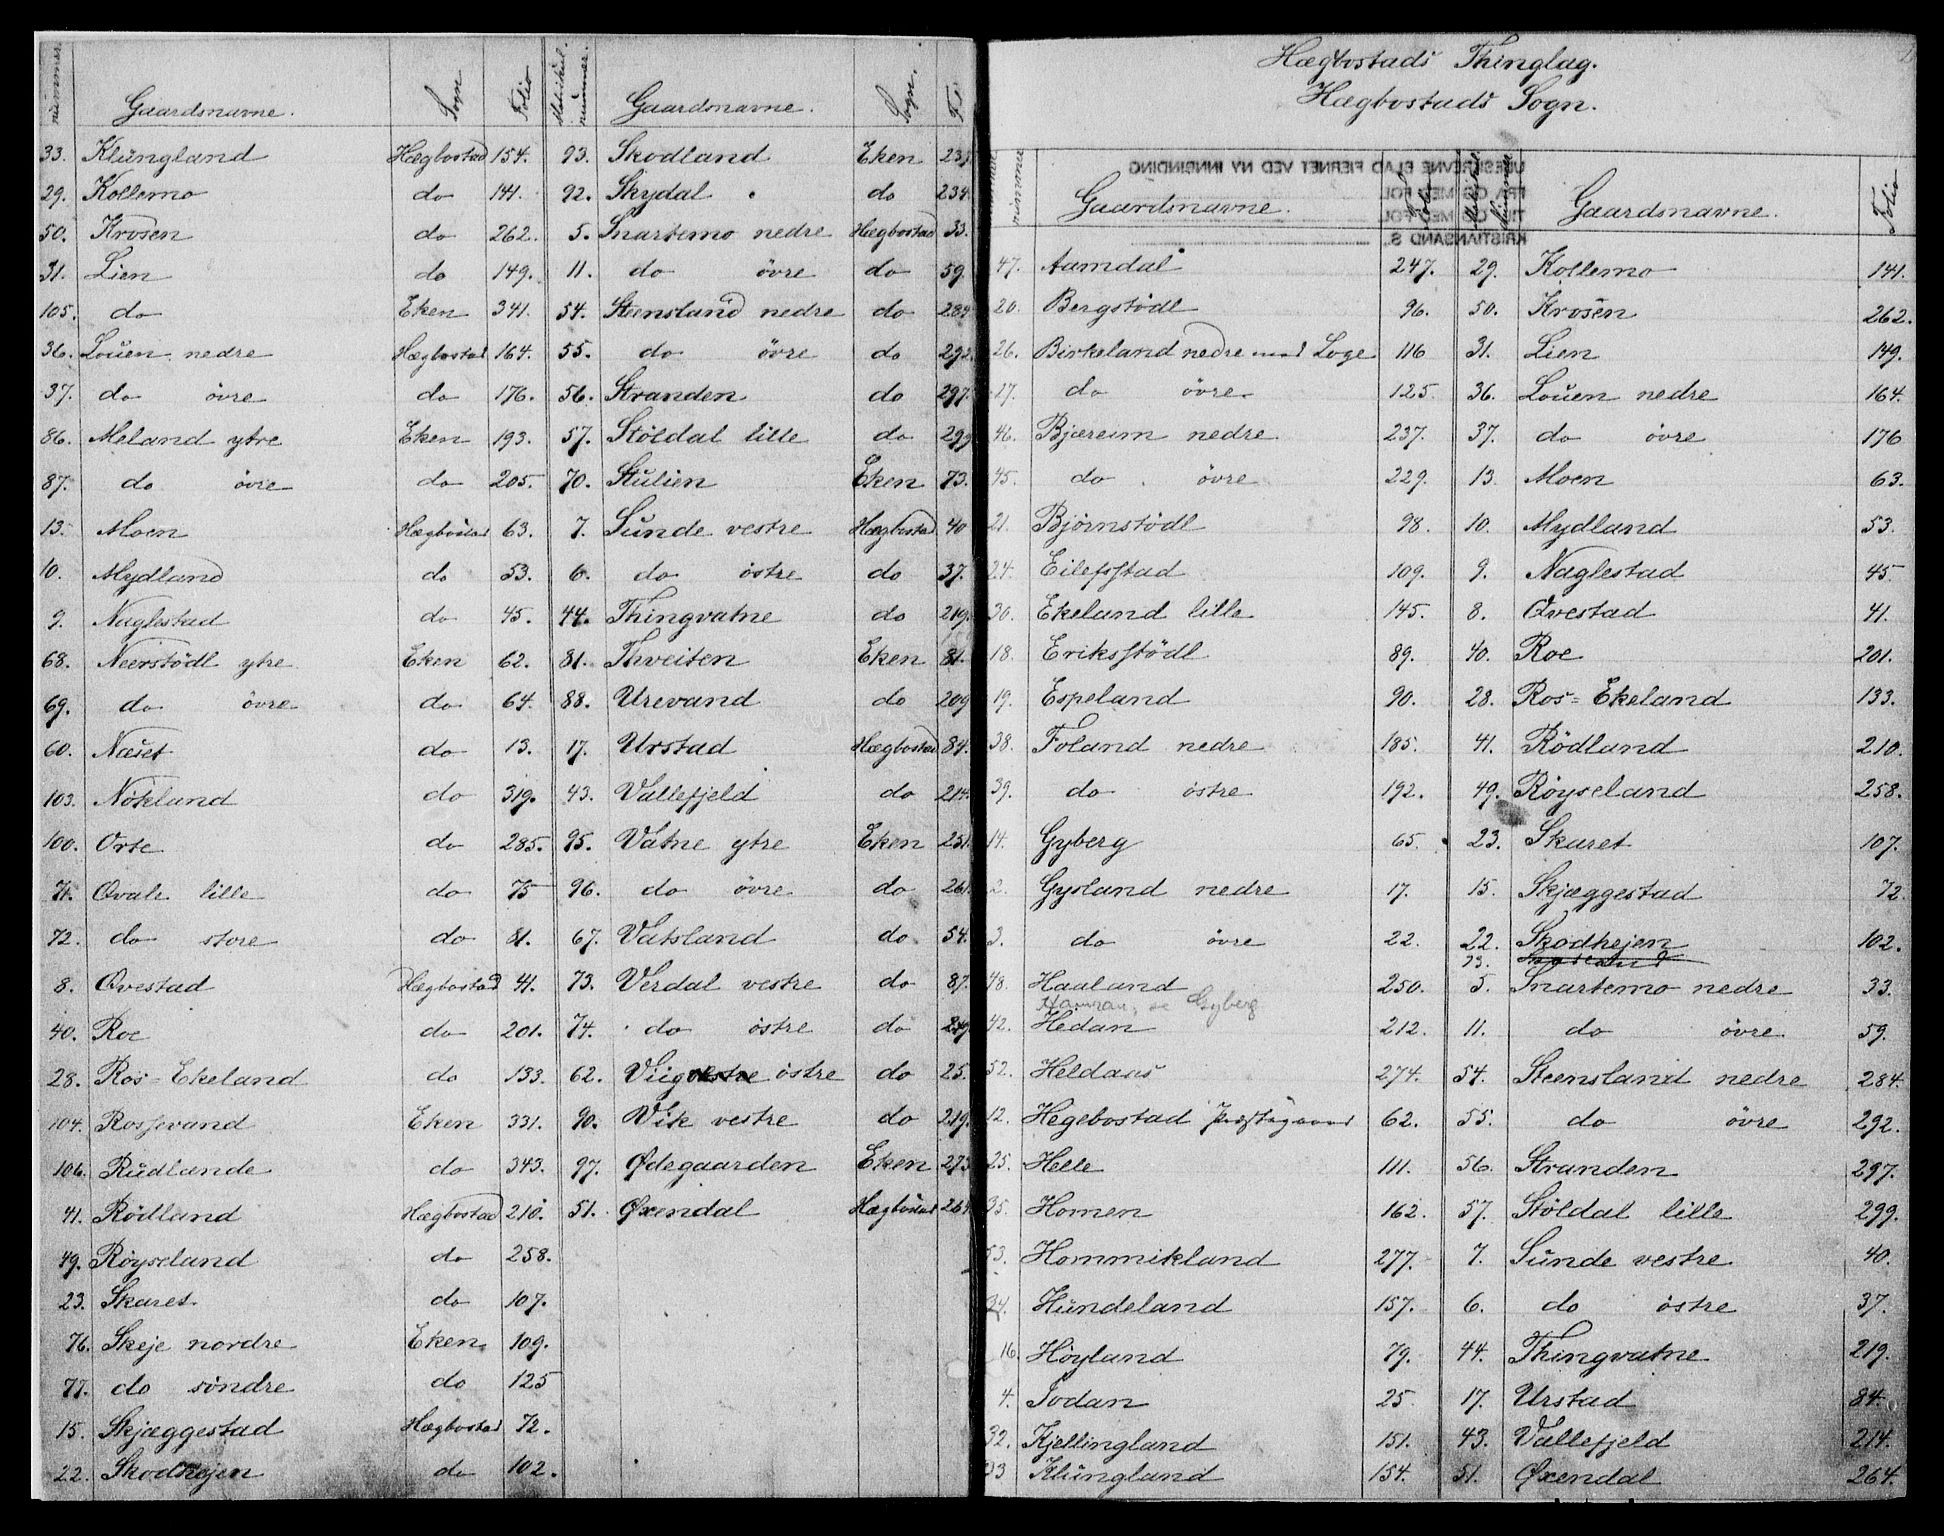 nummer. Gaardsnavne. Sogn. Folio Matrikul. nummer. Gaardsnavne. Sogn.
33. Klüngland Hægbostad 154. 93. Skodland Eken 23
29. Kollemo do 141. 92. Skydal do 234.
50. Krosen do 262. 5. Snartemo nedre Hægbostad 33.
31. Lien do 149. 11. do övre do 59.
105. do Eken 341. 54. Steensland nedre do 284
36. Louen nedre Hægbostad 164. 55. do övre do 292.
37. do övre do 176. 56. Stranden do 297.
86. Meland ytre Eken 193. 57. Stöldal lille do 299
87. do övre do 205. 70. Stulien Eken 73.
13. Moen Hægbostad 63. 7. Sunde vestre Hægbostad 40
10. Mydland do 53. 6. do östre do 37.
9. Naglestad do 45. 44. Thingvatne do 219.
68. Neerstödl ytre Eken 62. 81. Thveiten Eken 81.
69. do övre do 64. 88. Urevand do 209
60. Næset do 13. 17. Urstad Hægbostad 84.
103. Nökland do 319. 43. Vallefjeld do 214.
100. Orte do 285. 95. Vatne ytre Eken 251.
71. Qvale lille do 75 96. do övre do 261.
72. do store do 81. 67. Vatsland do 54.
8. Qvestad Hægbostad 41. 73. Verdal vestre do 87.
40. Roe do 201. 74. do östre do
28. Ros-Ekeland do 133. 62. Viig östre do 25.
104. Rossevand Eken 331. 90. Vik vestre do 219.
106. Rüdlande do 343. 97. Ødegaarden Eken 273
41. Rödland Hægbostad 210. 51. Øxendal Hægbostad 264
49. Röyseland do 258.
23. Skaret do 107.
76. Skeje nordre Eken 109.
77. do söndre do 125
15. Skjæggestad Hægbostad 72.
22. Skodhejen do 102.
Hægbostads Thinglag.
Hægbostads Sogn.
UBESKREVNE BLAD FJERNET VED NY INNBINDING
FRA OG MED FOL
TIL OG MED FOL
KRISTIANSAND S.
nummer Gaardsnavne. Folio Matrikul Nummer Gaardsnavne. Folio
47. Aamdal 247. 29. Kollemo 141.
20. Bergstödl 96. 50. Krosen 262.
26. Birkeland nedre med Loge 116 31. Lien 149.
17. do övre 125. 36. Louen nedre 164.
46. Bjæreim nedre 237. 37. do övre 176
45. do övre 229. 13. Moen 63.
21. Björnstödl 98. 10. Mydland 53.
24. Eilefsstad 109. 9. Naglestad 45
30. Ekeland lille 145. 8. Qvestad 41.
18. Eriksstödl 89. 40. Roe 201.
19. Espeland 90. 28. Ros-Ekeland 133.
38. Foland nedre 185. 41. Rödland 210.
39. do östre 192. 49. Röyseland 258.
14. Gyberg 65. 23. Skaret 107.
2. Gysland nedre 17. 15. Skjæggestad 72.
3. do övre 22. 22. Skodhejen 102.
93.
48. Haaland 250. 5. Snartemo nedre 33.
se Gyberg
42. Hedan 212. 11. do övre 59.
52. Heldaas 274. 54. Steensland nedre 284.
12. Hegebostad Præstegaard 62. 55. do övre 292.
25. Helle 111. 56. Stranden 297.
35. Homen 162. 57. Stöldal lille 299.
53. Hommikland 277. 7. Sunde vestre 40.
34. Hundeland 157. 6. do östre 37.
16. Höyland 79. 44. Thingvatne 219.
4. Jodan 25 17. Urstad 84.
32. Kjellingland 151. 43. Vallefjeld 214.
33 Klüngland 154. 51. Øxendal 264.